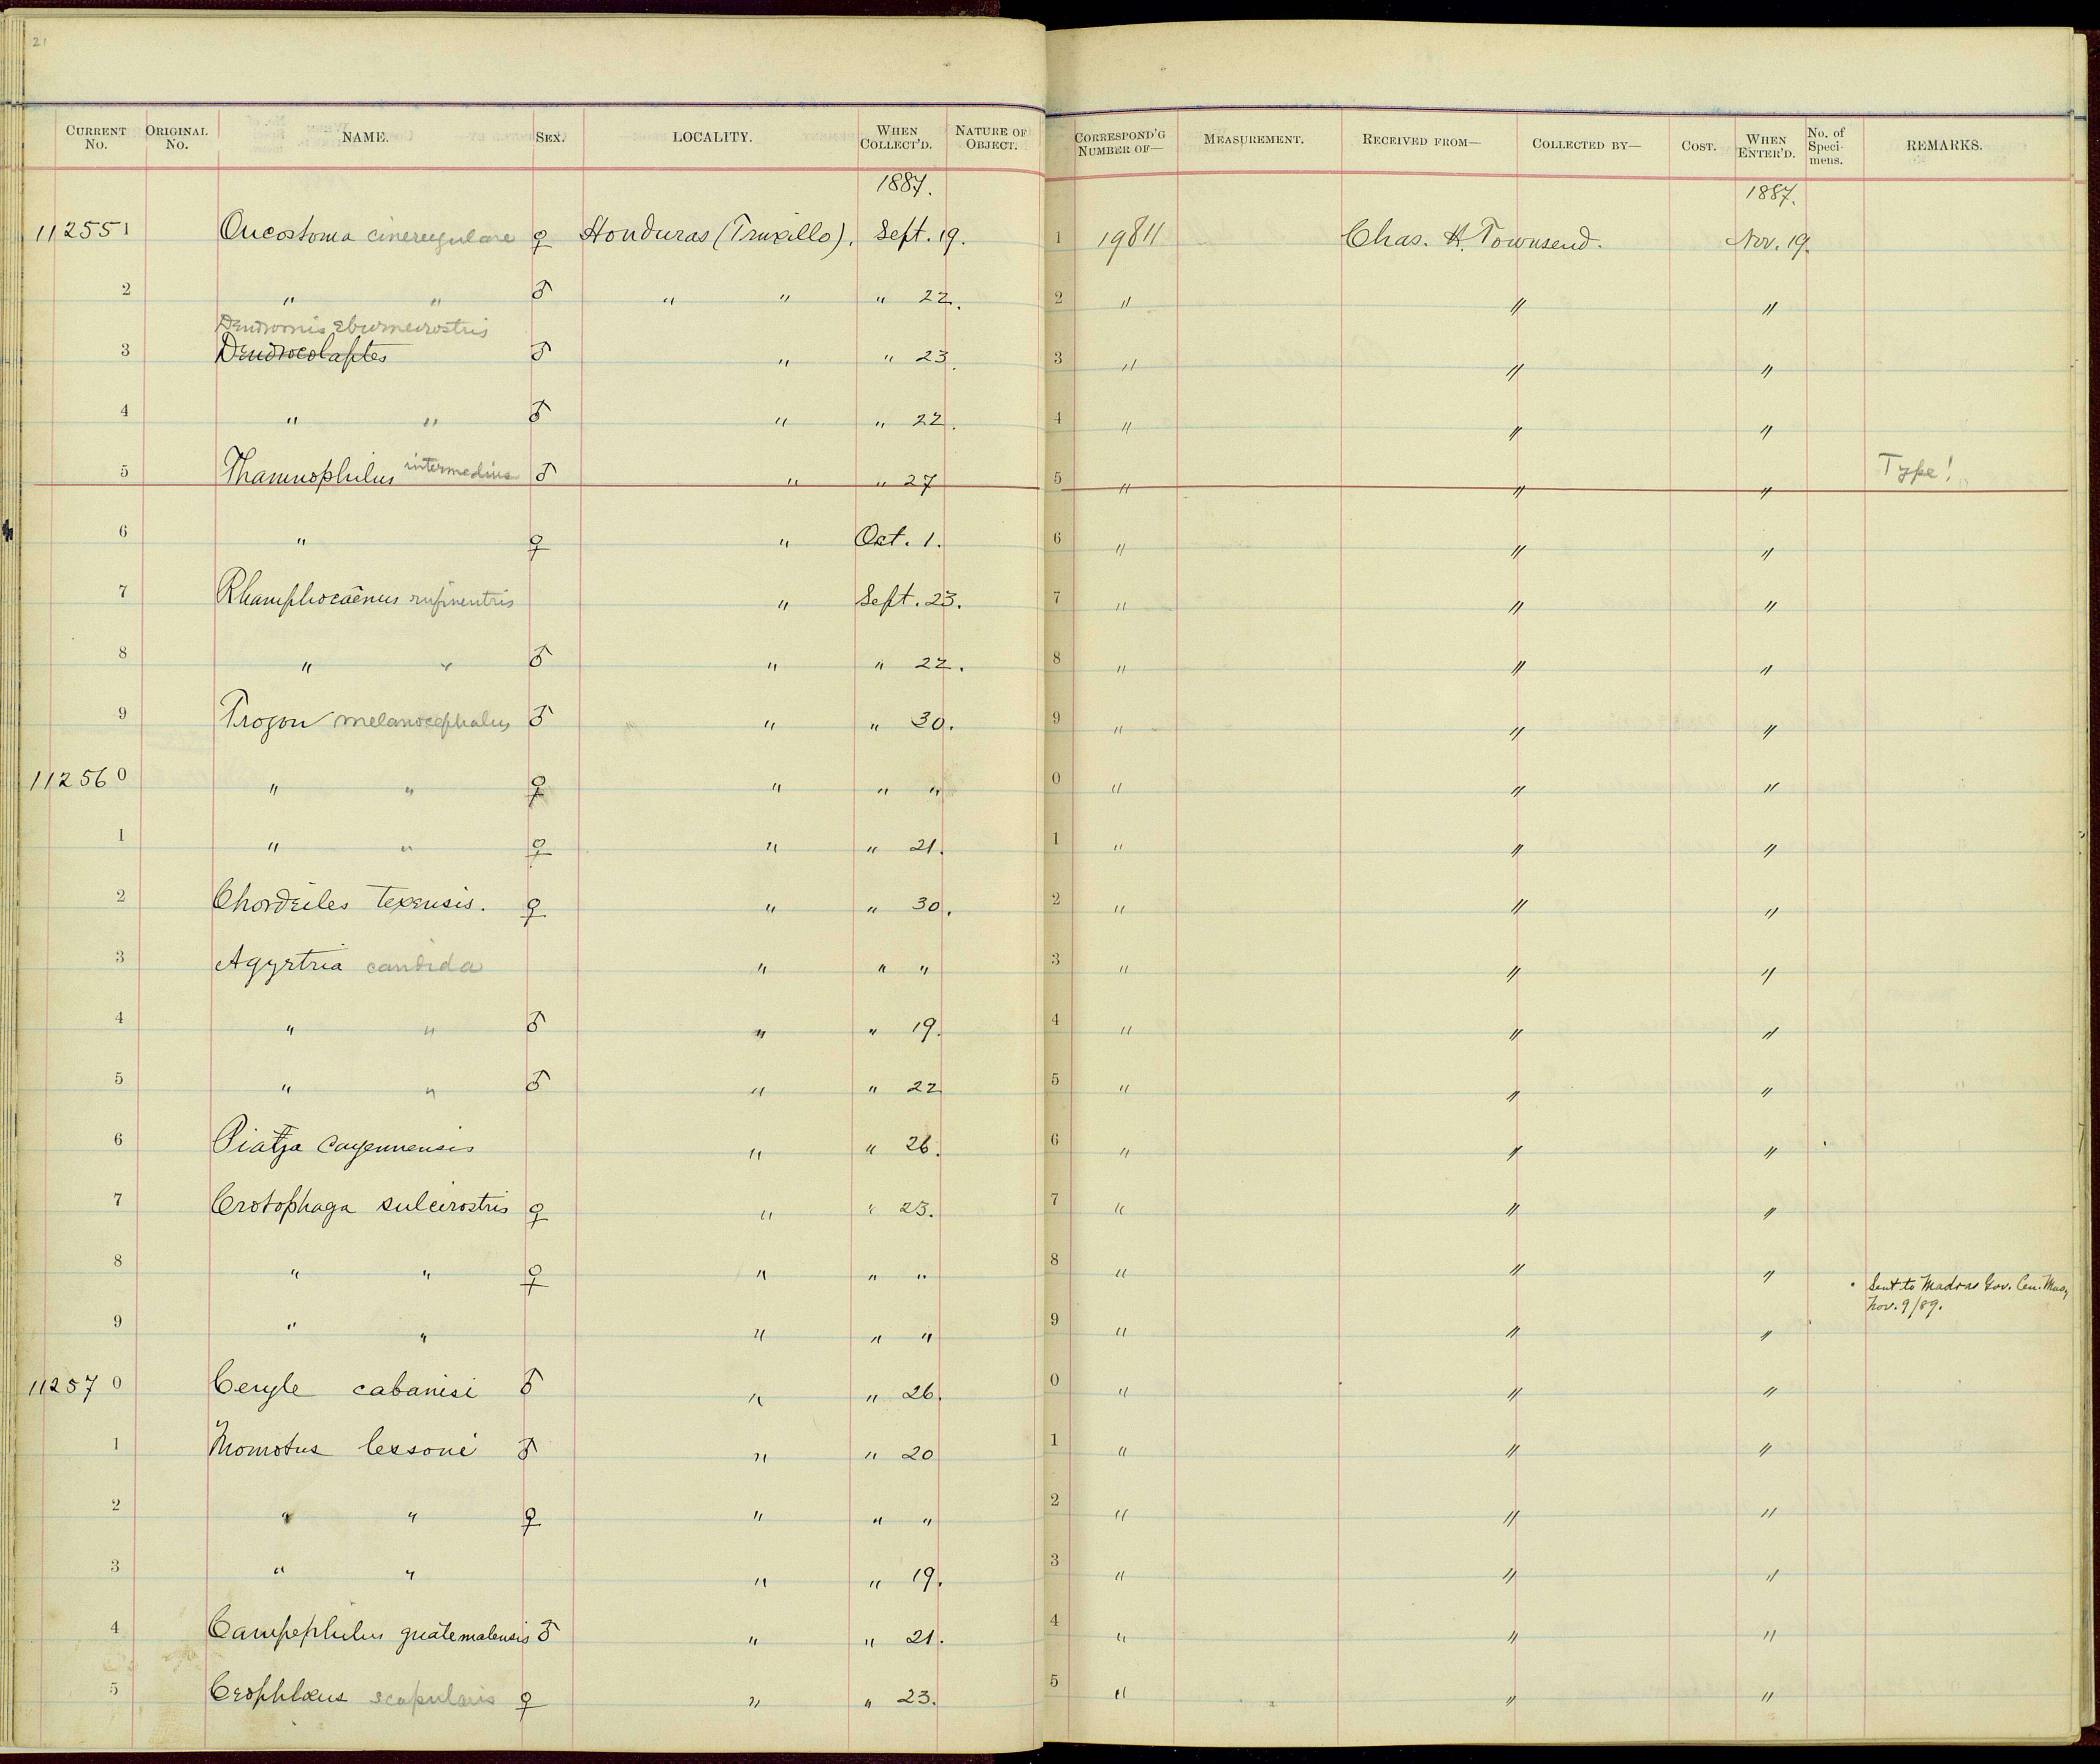 21
CURRENT No. ORIGINAL No. NAME. SEX. LOCALITY. WHEN COLLECT'D. NATURE OF OBJECT. CORRESPOND'G NUMBER OF— MEASUREMENT. RECEIVED FROM— COLLECTED BY— COST. WHEN ENTER'D. No. of Speci-mens. REMARKS.
1887. 1887.
112551 Oncostoma cinereigulare ♀ Honduras (Truxillo). Sept. 19. 1 19811 Chas. H. Townsend. Nov. 19.
2 " " ♂ " " " 22. 2 " " "
Dendrornis eburneirostris
3 Dendrocolaptes ♂ " " 23. 3 " " "
4 " " ♂ " " 22. 4 " " "
5 Thamnophilus intermedius ♂ " " 27 5 " " " Type!
6 " ♀ " Oct. 1. 6 " " "
7 Rhamphocaenus rufiventris " Sept. 23. 7 " " "
8 " " ♂ " " 22. 8 " " "
9 Trogon melanocephalus ♂ " " 30. 9 " " "
112560 " " ♀ " " " 0 " " "
1 " " ♀ " " 21. 1 " " "
2 Chordeiles texensis. ♀ " " 30. 2 " " "
3 Agyrtria candida " " " 3 " " "
4 " " ♂ " " 19. 4 " " "
5 " " ♂ " " 22 5 " " "
6 Piatya cayennensis " " 26. 6 " " "
7 Crotophaga sulcirostris ♀ " " 23. 7 " " "
8 " " ♀ " " " 8 " " " Sent to Madras Gov. Cen. Mus,
Nov. 9/89.
9 " " " " " 9 " " "
112570 Ceryle cabanisi ♂ " " 26. 0 " " "
1 Momotus lessoni ♂ " " 20 1 " " "
2 " " ♀ " " " 2 " " "
3 " " " " 19. 3 " " "
4 Campephilus guatemalensis ♂ " " 21. 4 " " "
5 Ceophlœus scapularis ♀ " " 23. 5 " " "